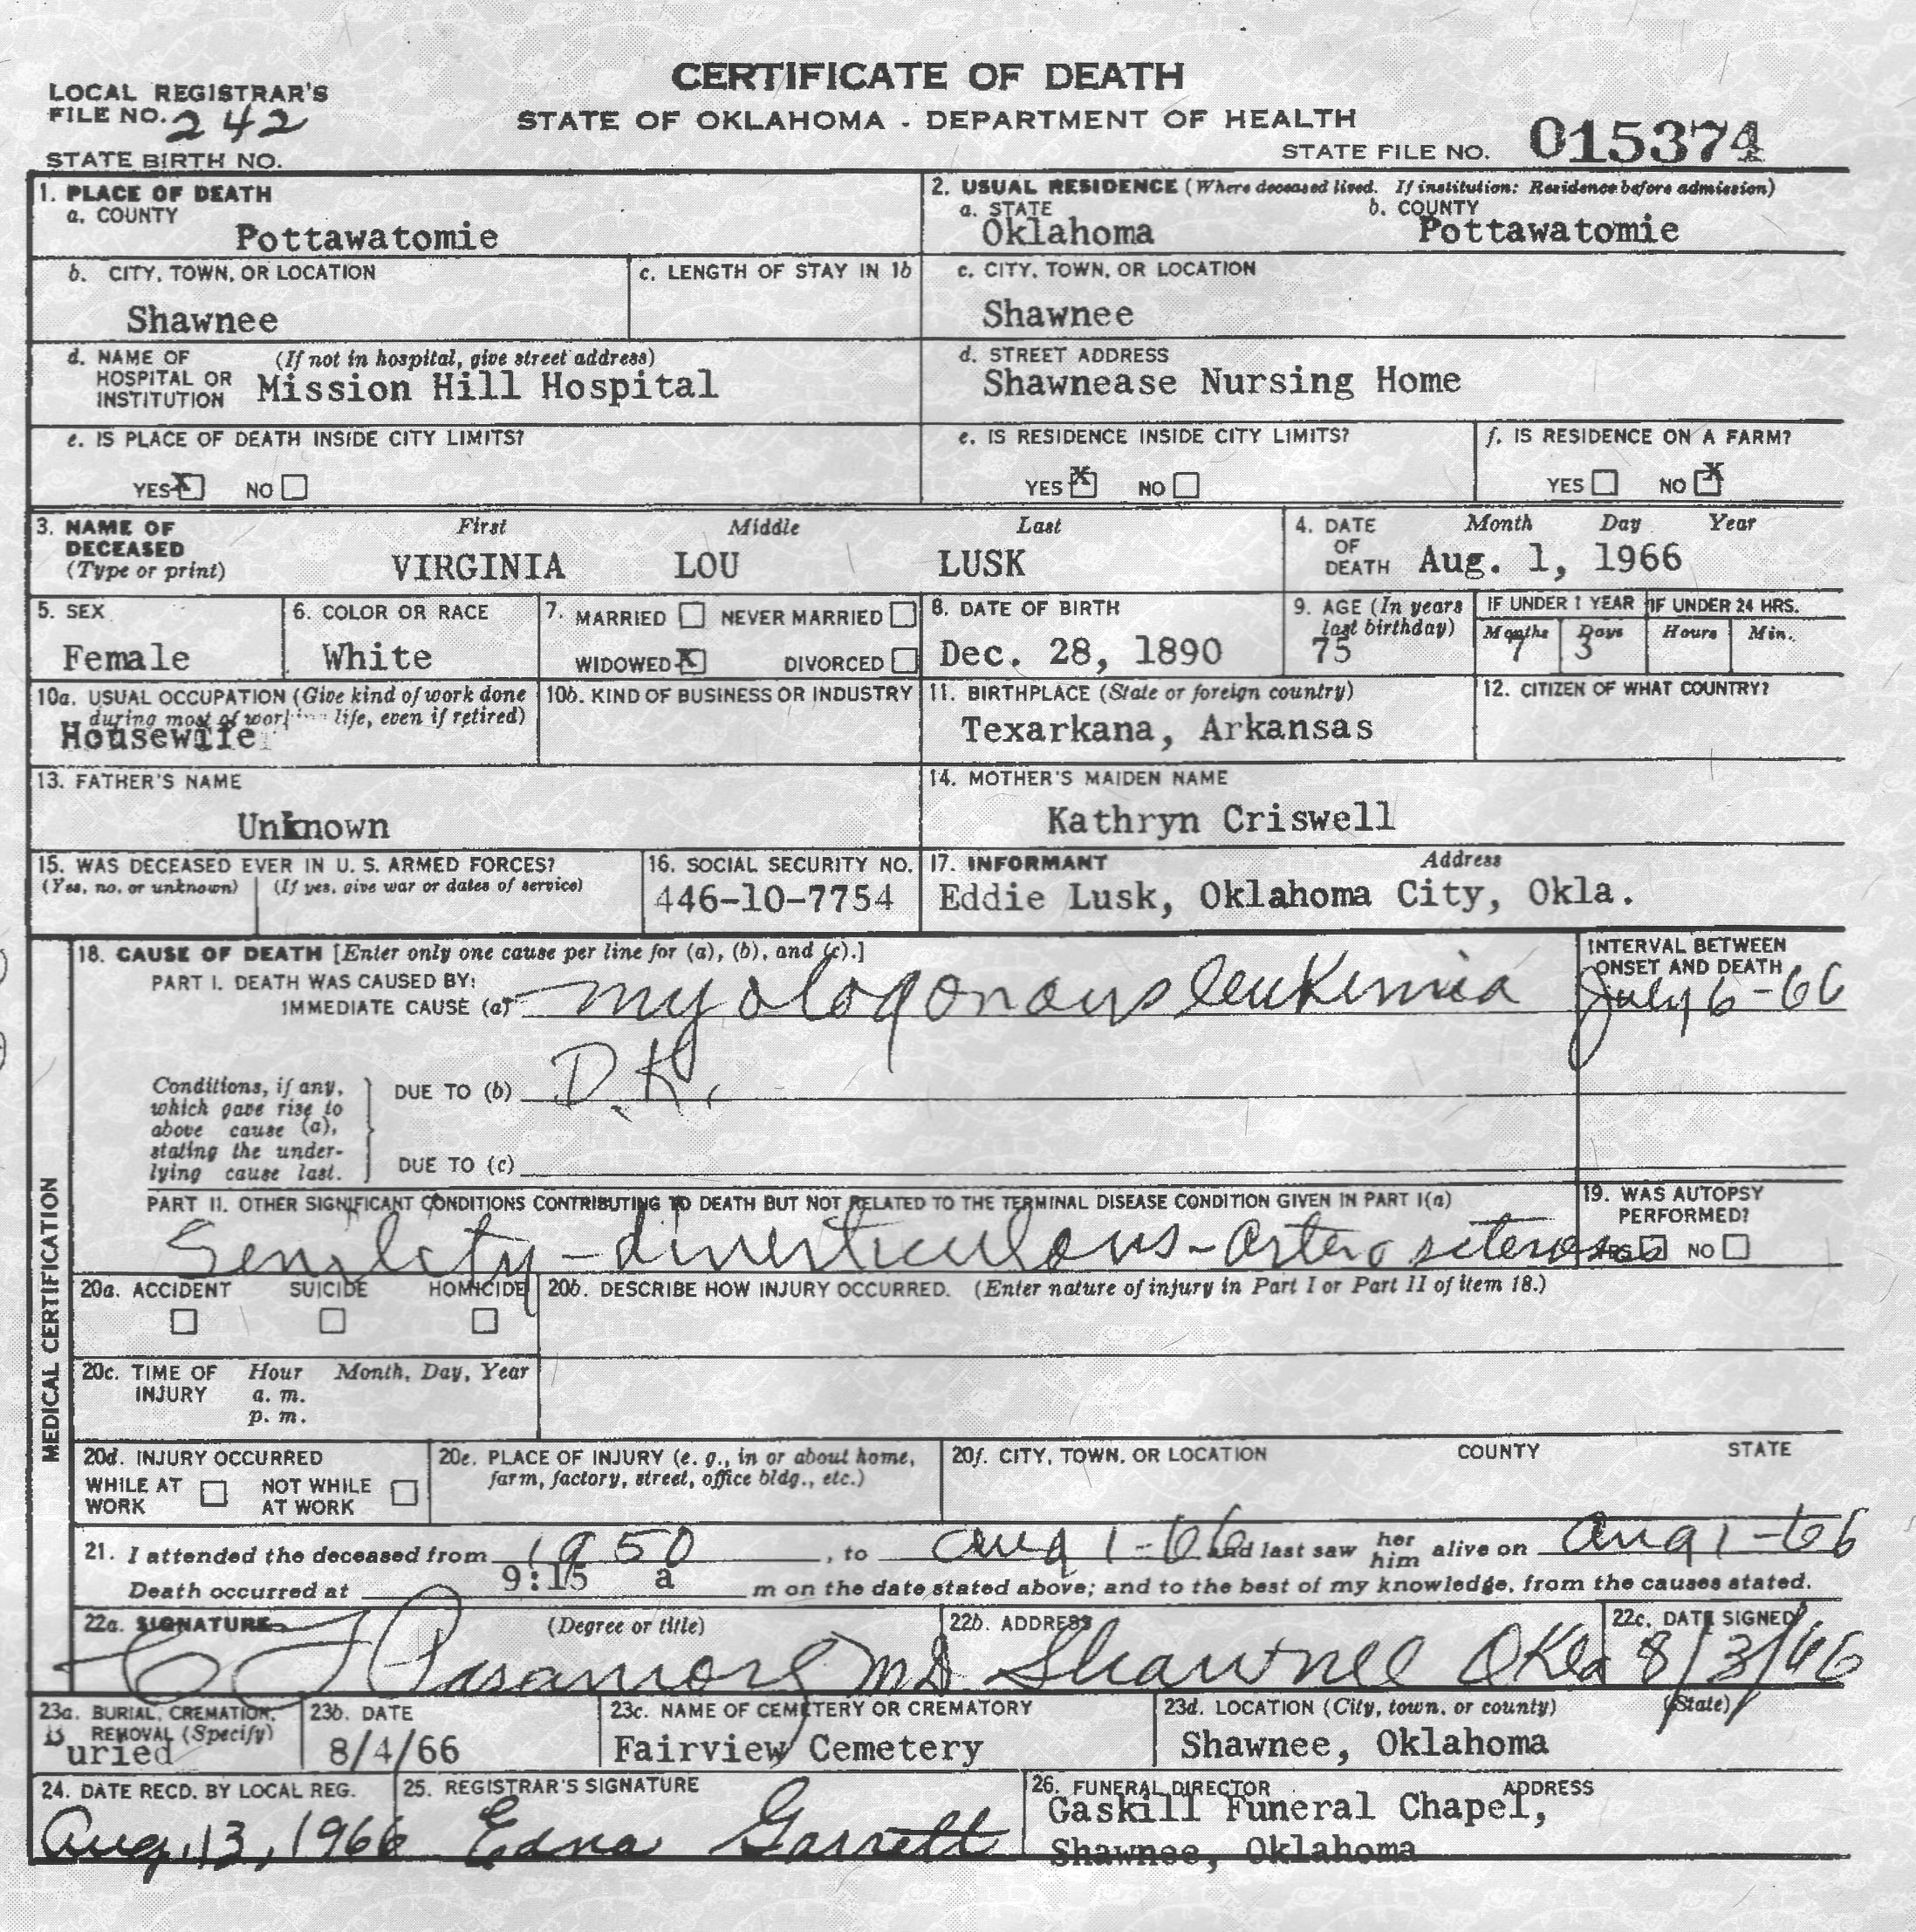 CERTIFICATE OF DEATH
STATE OF OKLAHOMA - DEPARTMENT OF HEALTH
LOCAL REGISTRAR'S
FILE NO. 242
STATE BIRTH NO.
STATE FILE NO. 015374
1. PLACE OF DEATH
a. COUNTY
Pottawatomie
2. USUAL RESIDENCE (Where deceased lived. If institution: Residence before admission)
a. STATE b. COUNTY
Oklahoma Pottawatomie
b. CITY, TOWN, OR LOCATION c. LENGTH OF STAY IN 1b
Shawnee
c. CITY, TOWN, OR LOCATION
Shawnee
d. NAME OF (If not in hospital, give street address)
HOSPITAL OR
INSTITUTION Mission Hill Hospital
d. STREET ADDRESS
Shawnease Nursing Home
e. IS PLACE OF DEATH INSIDE CITY LIMITS?
YES X NO
e. IS RESIDENCE INSIDE CITY LIMITS?
YES X NO
f. IS RESIDENCE ON A FARM?
YES NO X
3. NAME OF DECEASED (Type or print)
First Middle Last
VIRGINIA LOU LUSK
4. DATE OF DEATH Month Day Year
Aug. 1, 1966
5. SEX
Female
6. COLOR OR RACE
White
7. MARRIED NEVER MARRIED
WIDOWED X DIVORCED
8. DATE OF BIRTH
Dec. 28, 1890
9. AGE (In years last birthday)
75
IF UNDER 1 YEAR IF UNDER 24 HRS.
Months Days Hours Min.
7 3
10a. USUAL OCCUPATION (Give kind of work done
during most of working life, even if retired)
Housewife
10b. KIND OF BUSINESS OR INDUSTRY
11. BIRTHPLACE (State or foreign country)
Texarkana, Arkansas
12. CITIZEN OF WHAT COUNTRY?
13. FATHER'S NAME
Unknown
14. MOTHER'S MAIDEN NAME
Kathryn Criswell
15. WAS DECEASED EVER IN U. S. ARMED FORCES?
(Yes, no, or unknown) (If yes, give war or dates of service)
16. SOCIAL SECURITY NO.
446-10-7754
17. INFORMANT Address
Eddie Lusk, Oklahoma City, Okla.
MEDICAL CERTIFICATION
18. CAUSE OF DEATH [Enter only one cause per line for (a), (b), and (c).]
PART I. DEATH WAS CAUSED BY:
IMMEDIATE CAUSE (a) myologonous leukemia
INTERVAL BETWEEN
ONSET AND DEATH
July 6-66
Conditions, if any,
which gave rise to
above cause (a),
stating the under-
lying cause last.
DUE TO (b) D.K.
DUE TO (c)
PART II. OTHER SIGNIFICANT CONDITIONS CONTRIBUTING TO DEATH BUT NOT RELATED TO THE TERMINAL DISEASE CONDITION GIVEN IN PART I(a)
Senility - diverticulous -
19. WAS AUTOPSY
PERFORMED?
YES NO
20a. ACCIDENT SUICIDE HOMICIDE
20b. DESCRIBE HOW INJURY OCCURRED. (Enter nature of injury in Part I or Part II of item 18.)
20c. TIME OF INJURY Hour Month, Day, Year
a. m.
p. m.
20d. INJURY OCCURRED
WHILE AT WORK NOT WHILE AT WORK
20e. PLACE OF INJURY (e. g., in or about home,
farm, factory, street, office bldg., etc.)
20f. CITY, TOWN, OR LOCATION COUNTY STATE
21. I attended the deceased from 1950, to Aug 1-66 and last saw her him alive on Aug 1-66
Death occurred at 9:15 a m on the date stated above; and to the best of my knowledge, from the causes stated.
22a. SIGNATURE (Degree or title)
MD
22b. ADDRESS
Shawnee Okla
22c. DATE SIGNED
8/3/66
23a. BURIAL, CREMATION,
REMOVAL (Specify)
Buried
23b. DATE
8/4/66
23c. NAME OF CEMETERY OR CREMATORY
Fairview Cemetery
23d. LOCATION (City, town, or county) (State)
Shawnee, Oklahoma
24. DATE RECD. BY LOCAL REG.
Aug. 13, 1966
25. REGISTRAR'S SIGNATURE
Edna Garrett
26. FUNERAL DIRECTOR ADDRESS
Gaskill Funeral Chapel,
Shawnee, Oklahoma